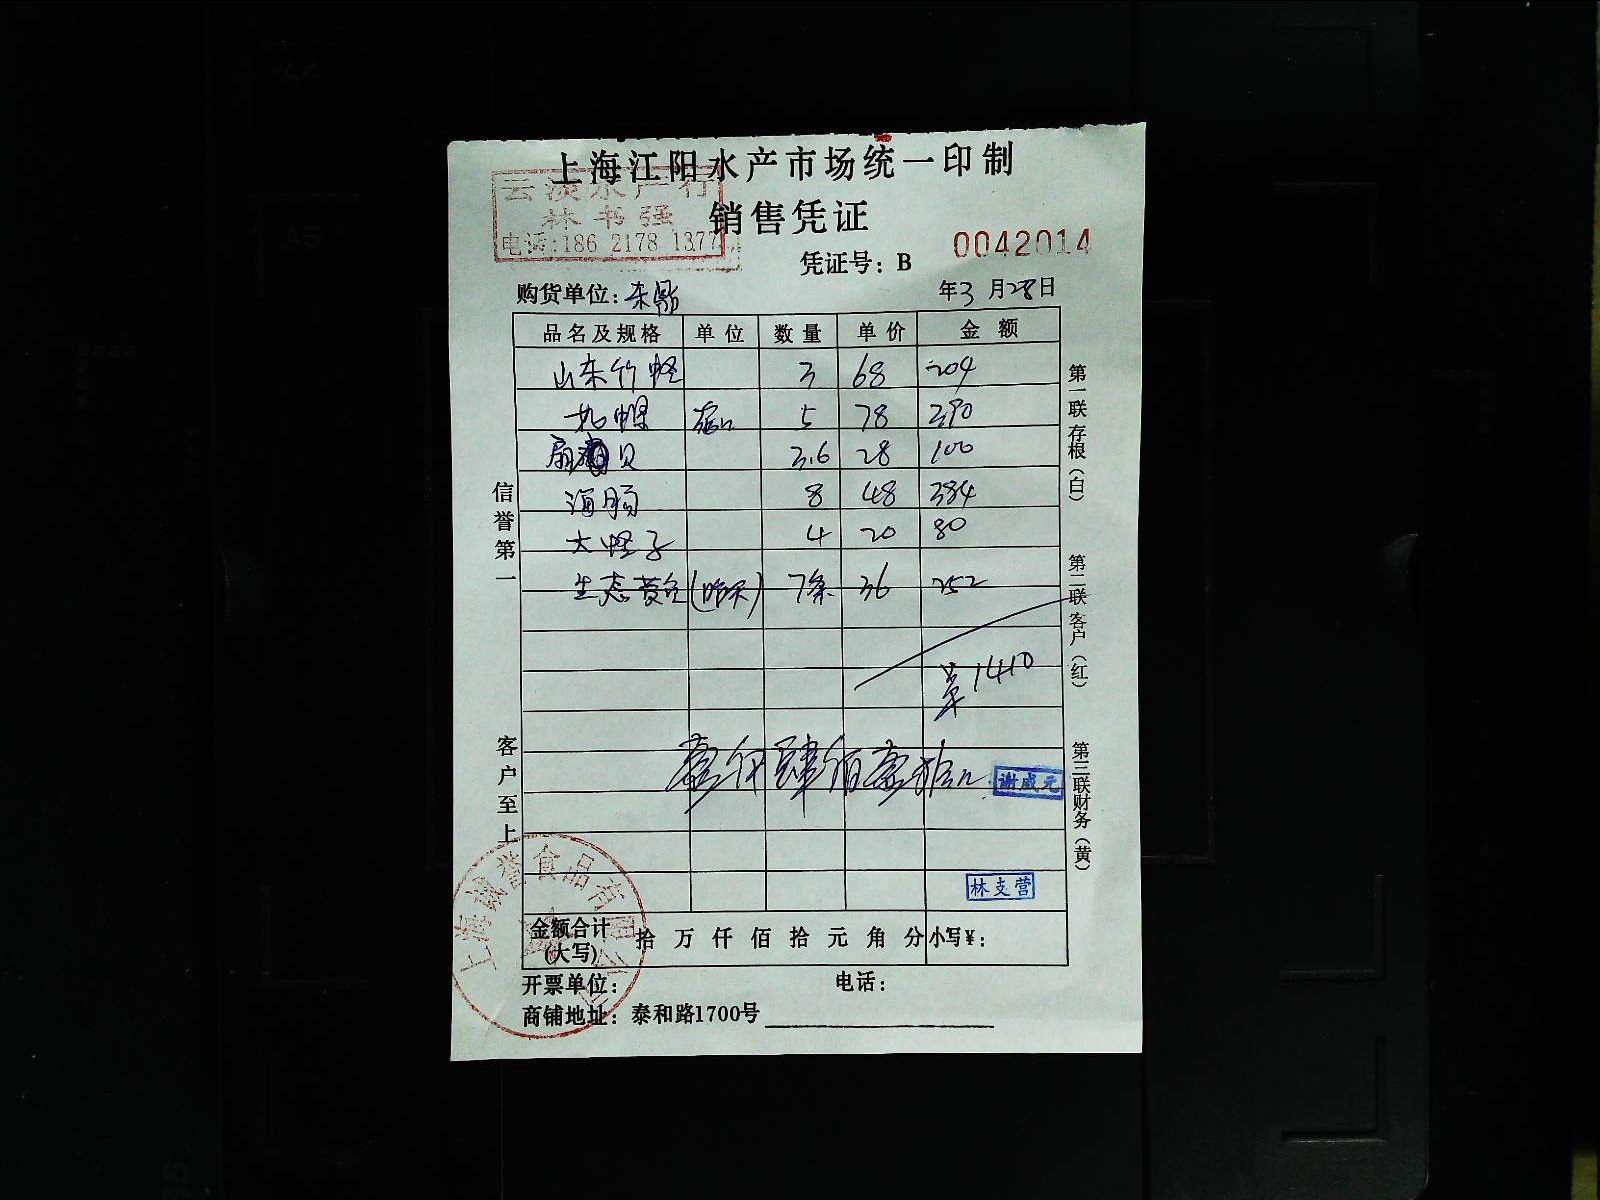 上海江阳水产市场统一印制
销售凭证
林书强
电话:186 2178 1377
凭证号：B 0042014
购货单位：东鼎
年3月28日
品名及规格 单位 数量 单价 金额
山东竹蛏 3 68 204
5 78 390
扇贝 3.6 28 100
海肠 8 48 384
大蛏子 4 20 80
生态黄鱼 7条 36 252
单1410
壹仟肆佰壹拾元
谢成元
林支营
金额合计(大写) 拾万仟佰拾元角分 小写¥：
开票单位： 电话：
商铺地址：泰和路1700号
信誉第一
客户至上
第一联存根（白）
第二联客户（红）
第三联财务（黄）
上海诚誉食品有限公司